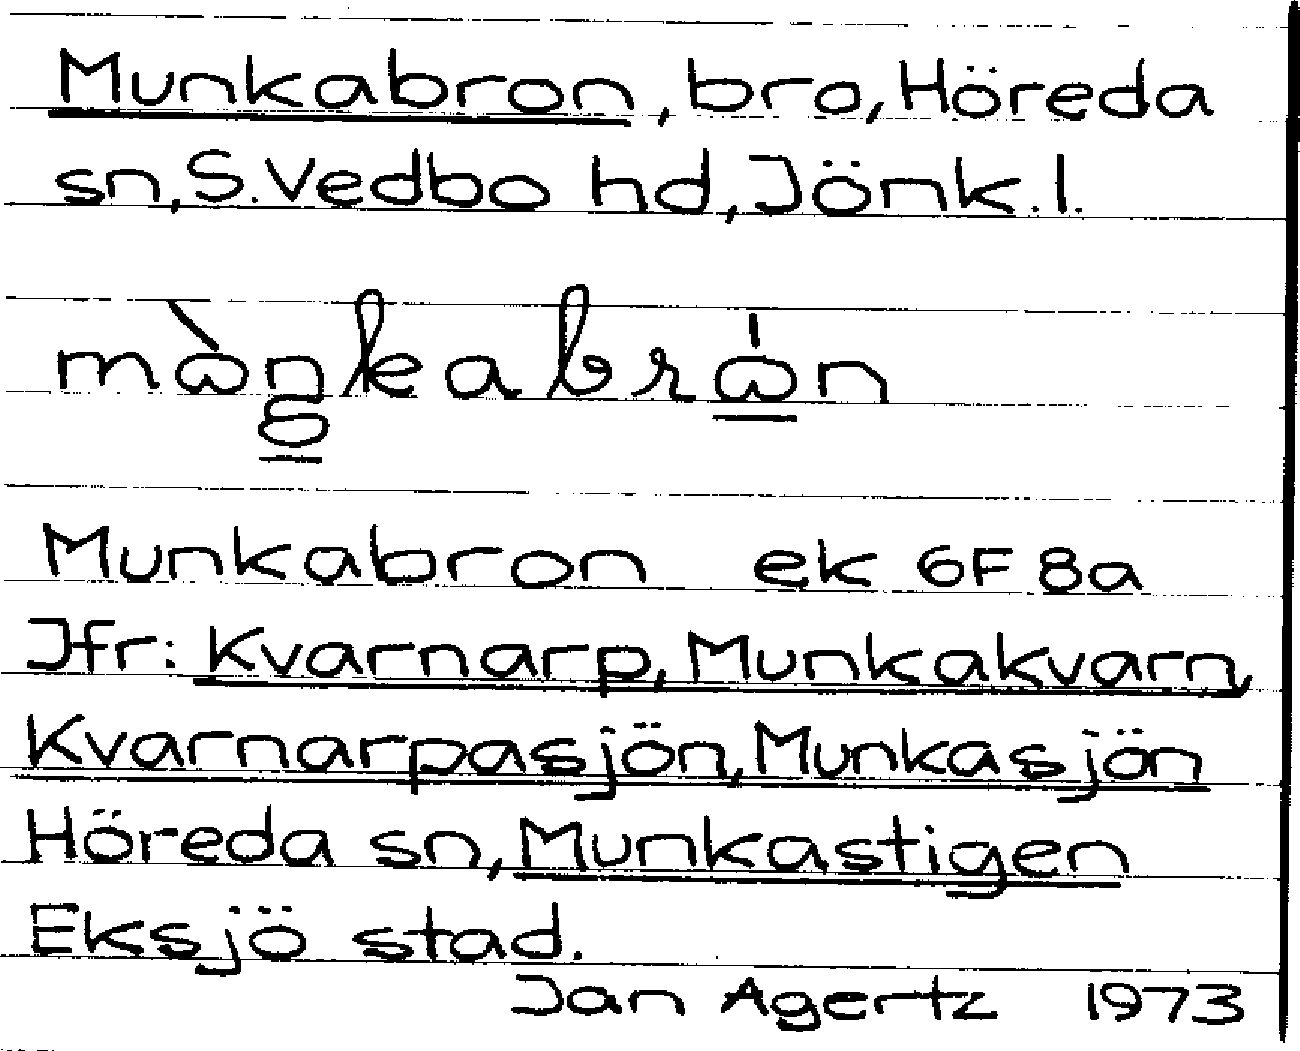 Munkabron, bro, Höreda
sn, S. Vedbo hd, Jönk. l.
mὼŋkabrώn
Munkabron ek 6F 8a
Jfr: Kvarnarp, Munkakvarn,
Kvarnarpasjön, Munkasjön
Höreda sn, Munkastigen
Eksjö stad.
Jan Agertz 1973